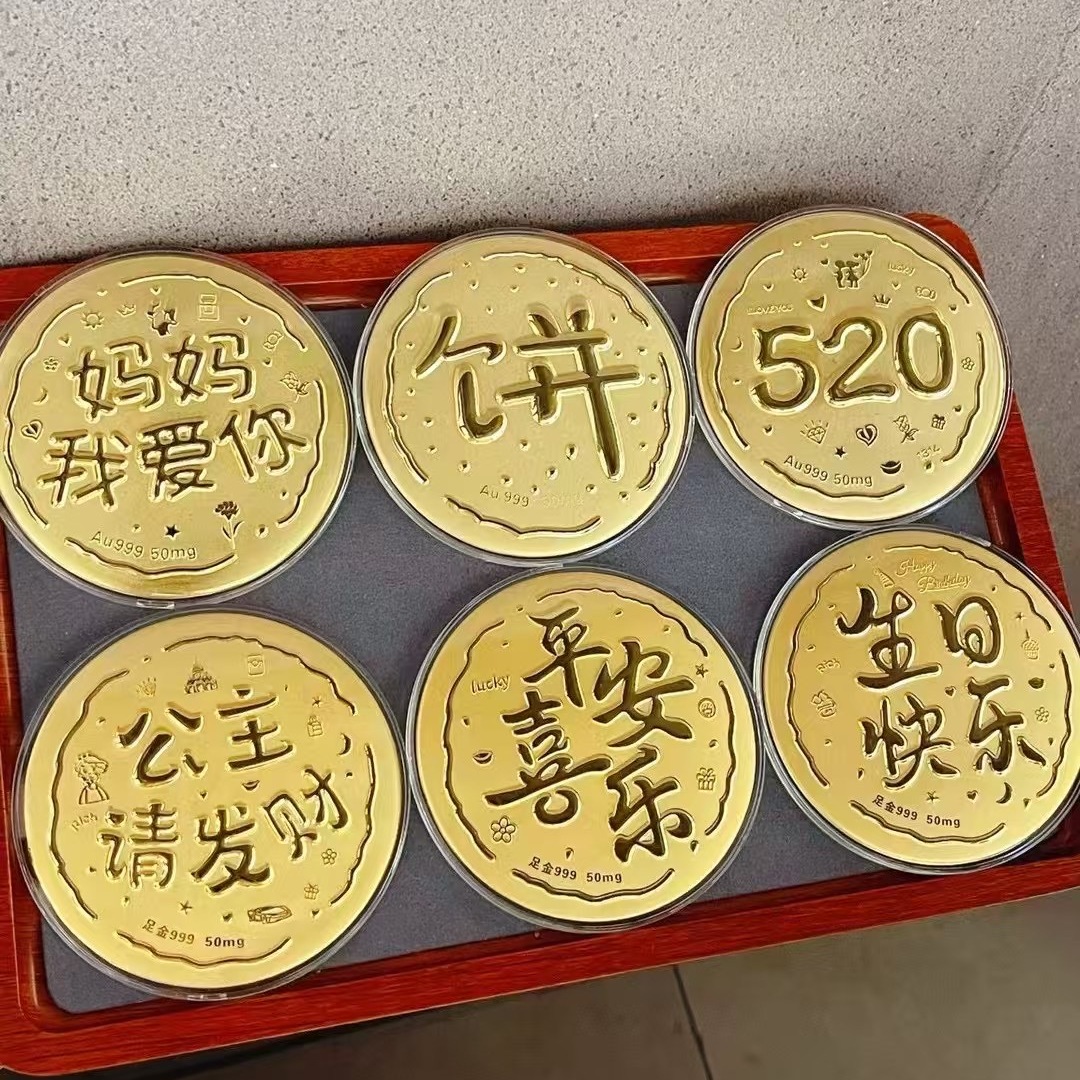 妈妈
我爱你
Au999 50mg
饼
Au 999 50mg
lucky
520
1314
Au999 50mg
公主
请发财
rich
足金999 50mg
lucky
平安
喜乐
足金999 50mg
Happy
Birthday
生日
快乐
足金999 50mg